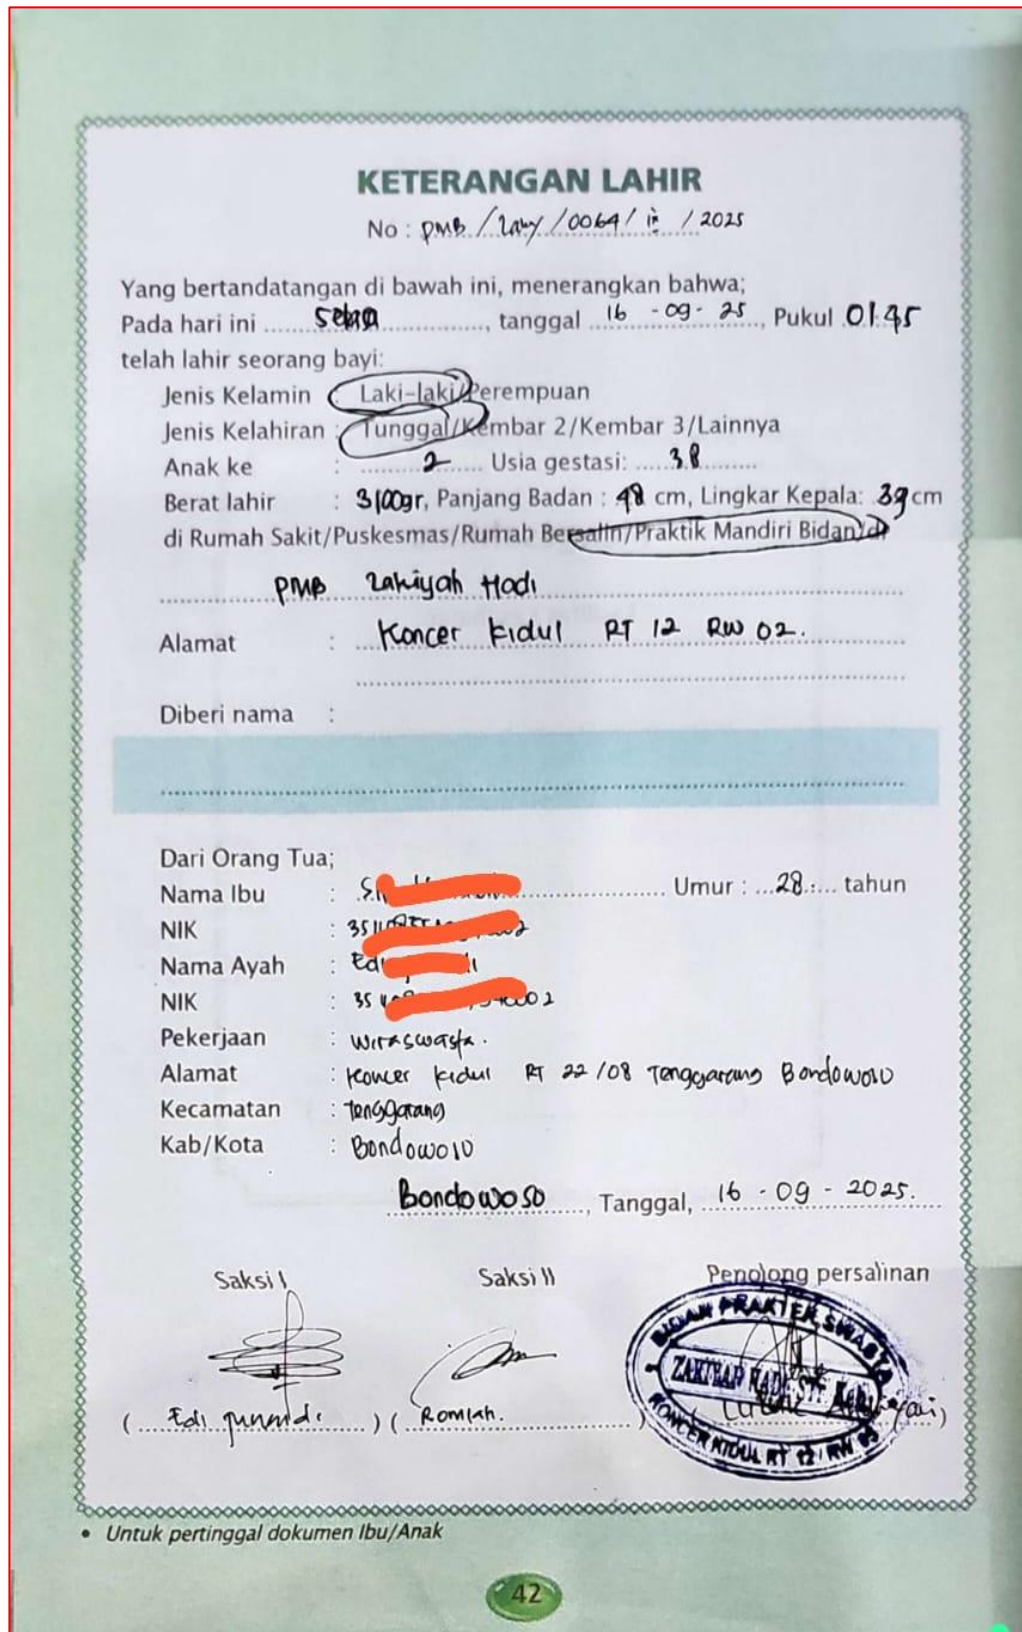 KETERANGAN LAHIR
No : PMB / Zaky / 0064 / ix / 2025
Yang bertandatangan di bawah ini, menerangkan bahwa;
Pada hari ini Selasa, tanggal 16 - 09 - 25, Pukul 01.45
telah lahir seorang bayi:
Jenis Kelamin : Laki-laki/Perempuan
Jenis Kelahiran : Tunggal/Kembar 2/Kembar 3/Lainnya
Anak ke : 2 Usia gestasi: 38
Berat lahir : 3100gr, Panjang Badan : 48 cm, Lingkar Kepala: cm
di Rumah Sakit/Puskesmas/Rumah Bersalin/Praktik Mandiri Bidan/di
PMB Zakiyah Hadi
Alamat : Koncer Kidul RT 12 RW 02.
Diberi nama :
Dari Orang Tua;
Nama Ibu : Umur : 28 tahun
NIK :
Nama Ayah :
NIK :
Pekerjaan : Wiraswasta.
Alamat : Koncer Kidul RT 22 /08 Tenggarang Bondowoso
Kecamatan : Tenggarang
Kab/Kota : Bondowoso
Bondowoso, Tanggal, 16 - 09 - 2025.
Saksi I Saksi II Penolong persalinan
BIDAN PRAKTEK SWASTA
( Edi ) ( Romlah. ) ( )
KONCER KIDUL RT 12 / RW
• Untuk pertinggal dokumen Ibu/Anak
42